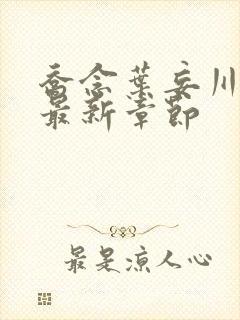 乔念叶妄川
最新章节
最是凉人心